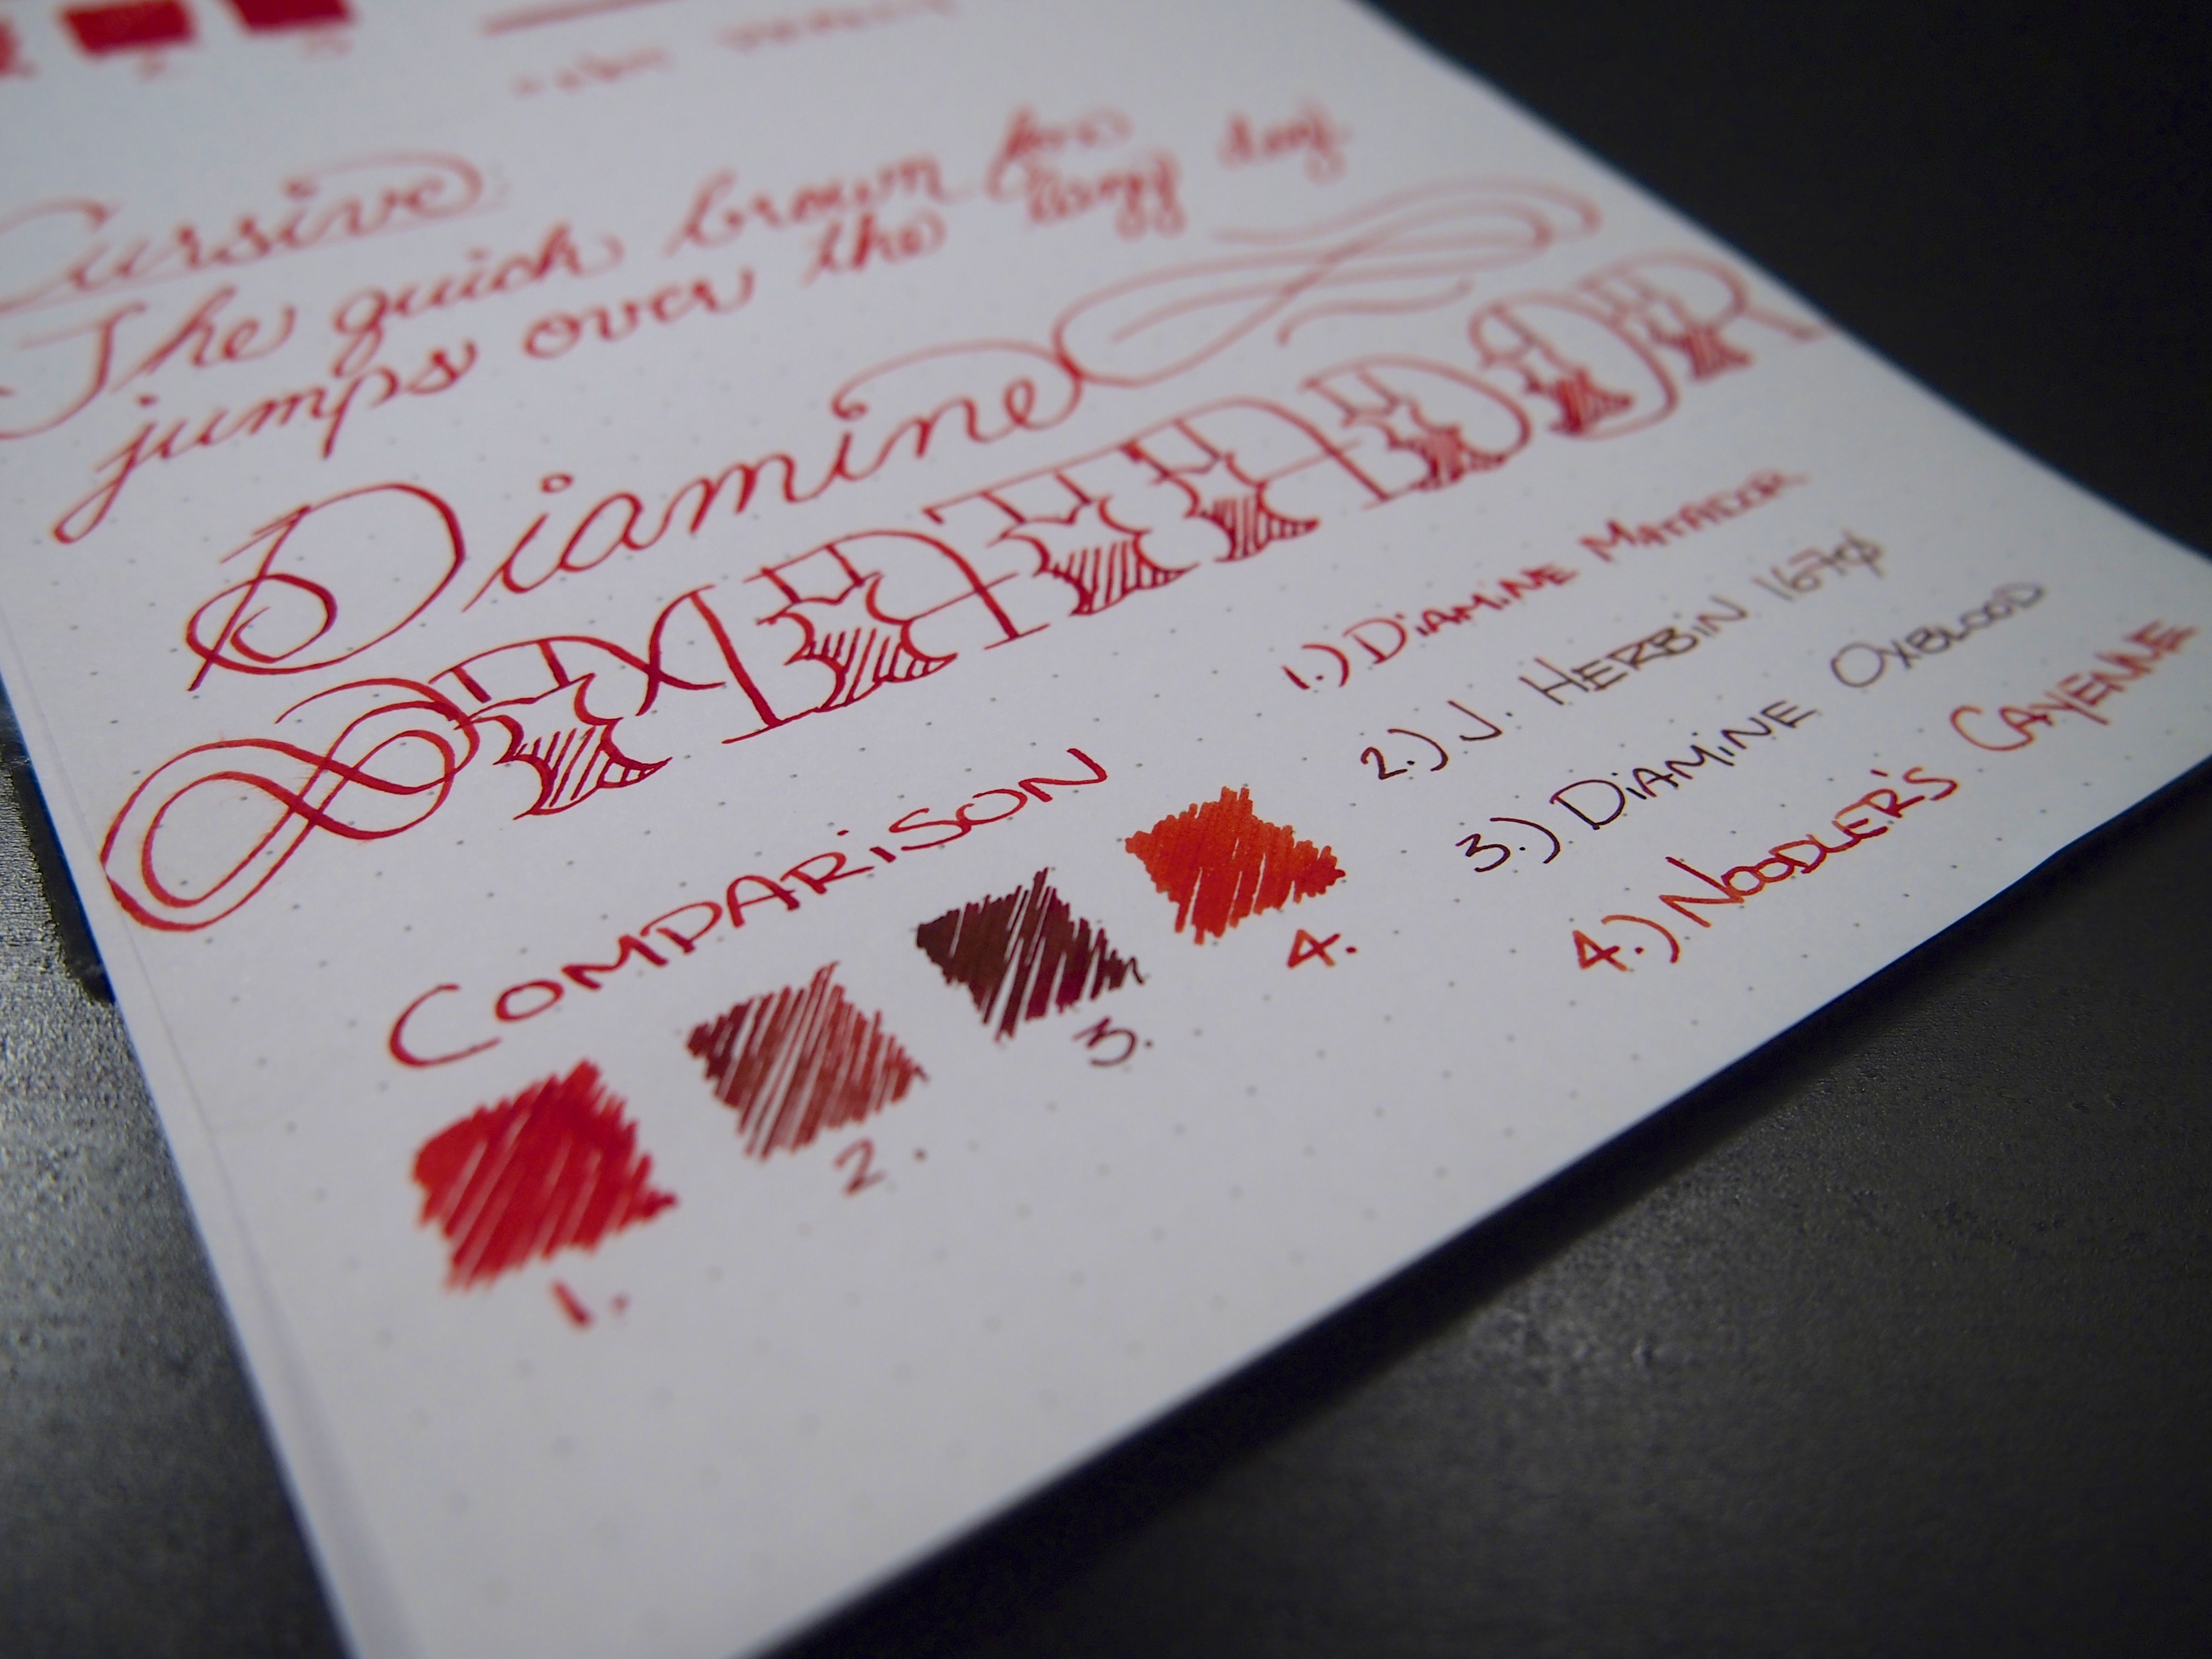 Cursive
The quick brown fox
jumps over the lazy dog.
Diamine
MATADOR
COMPARISON
1. 2. 3. 4.
1.) DIAMINE MATADOR
2.) J. HERBIN 1670
3.) DIAMINE OXBLOOD
4.) NOODLER'S CAYENNE